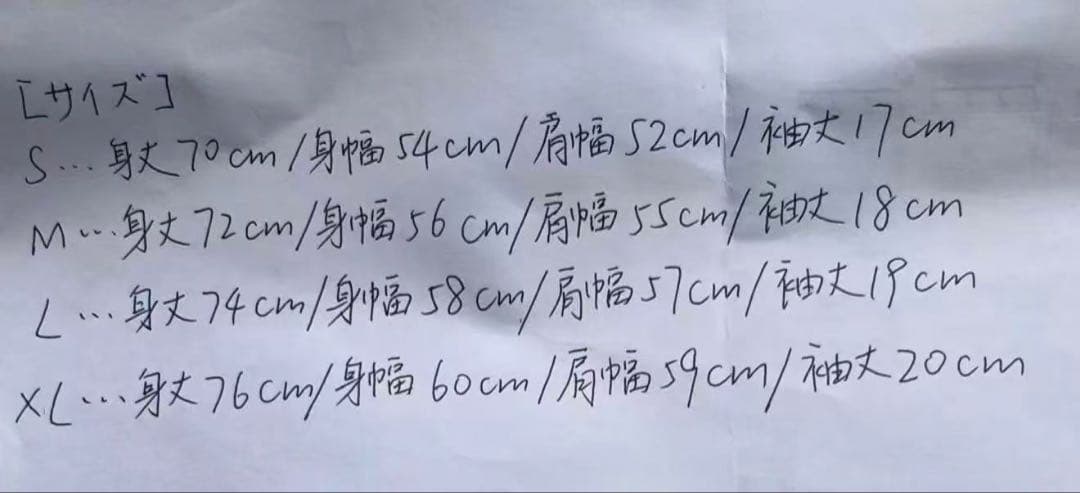 [サイズ]
S…身丈70cm/身幅54cm/肩幅52cm/袖丈17cm
M…身丈72cm/身幅56cm/肩幅55cm/袖丈18cm
L…身丈74cm/身幅58cm/肩幅57cm/袖丈19cm
XL…身丈76cm/身幅60cm/肩幅59cm/袖丈20cm